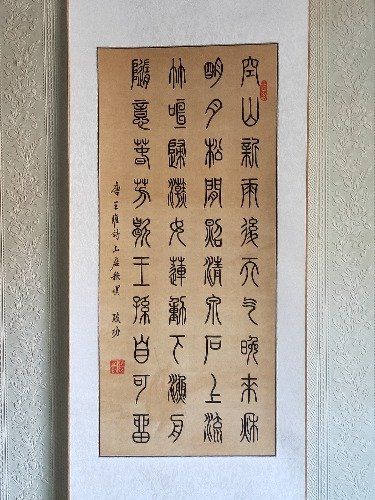 空山新雨後天气晚來秋
明月松間照清泉石上流
竹喧歸浣女蓮動下漁舟
隨意春芳歇王孫自可留
唐王維詩山居秋暝